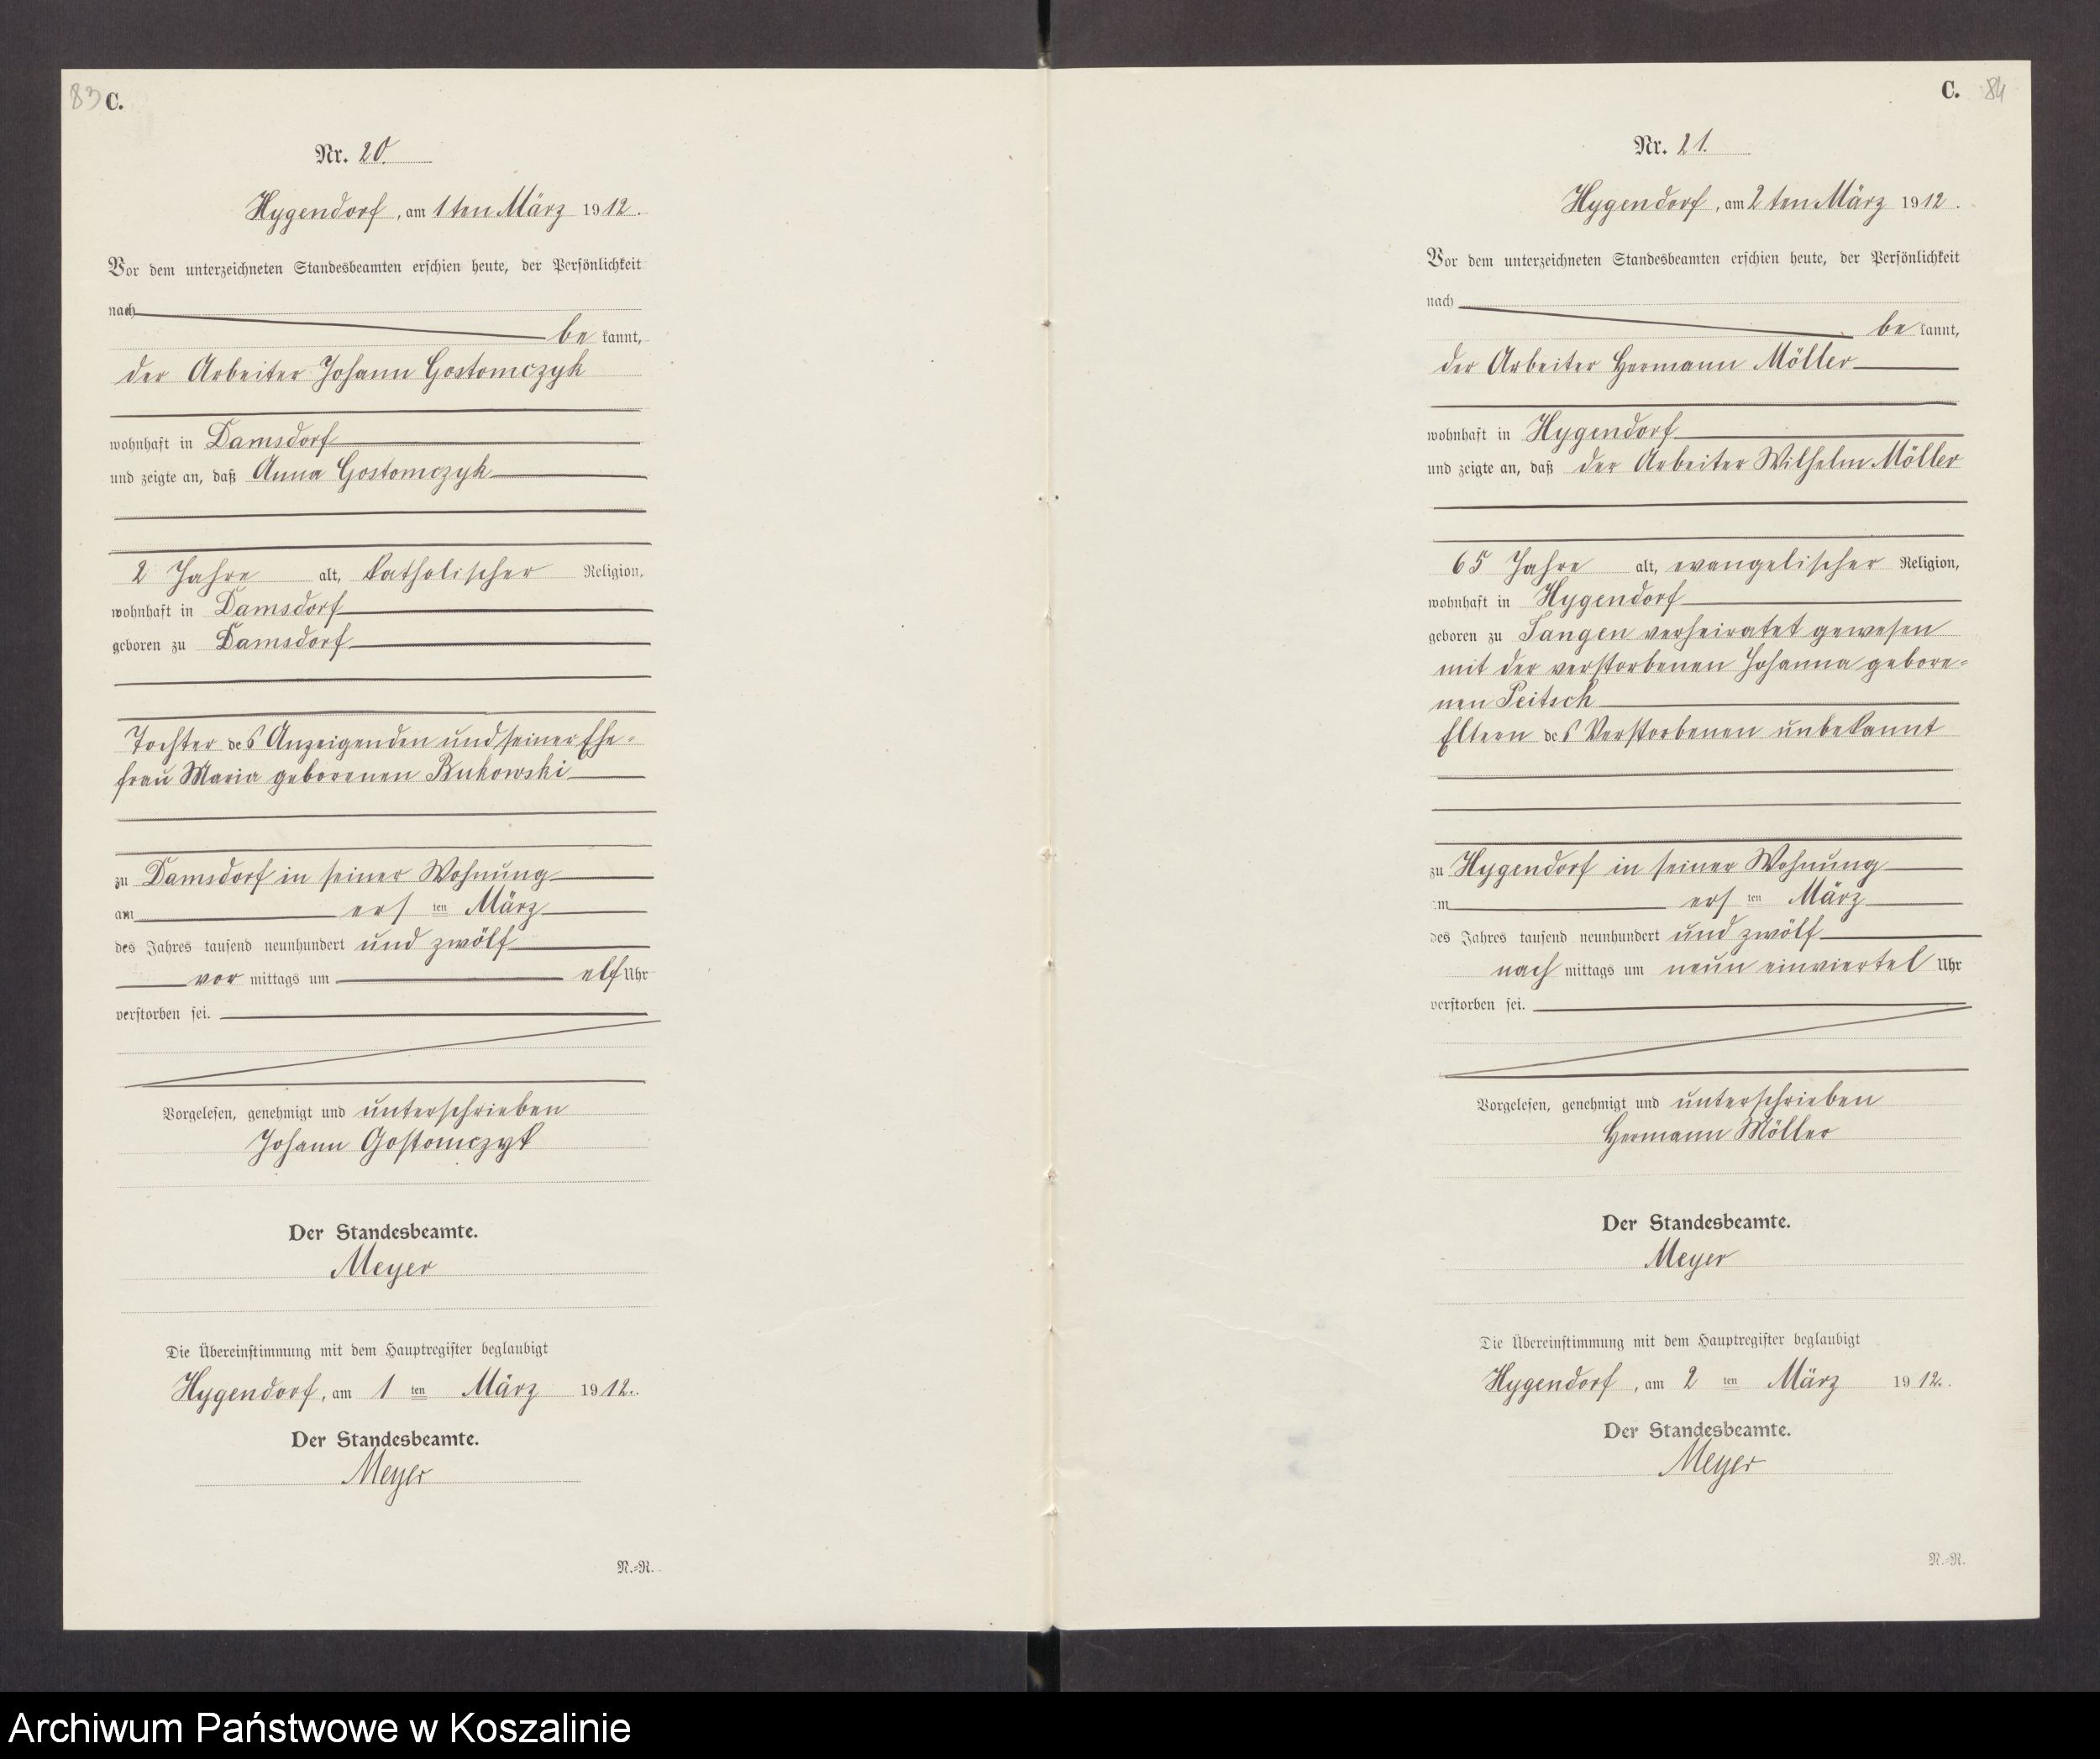 83 C.
Nr. 20.
Hygendorf, am 1ten März 1912.
Vor dem unterzeichneten Standesbeamten erschien heute, der Persönlichkeit
nach
be kannt,
der Arbeiter Johann Gostomczyk
wohnhaft in Damsdorf
und zeigte an, daß Anna Gostomczyk
2 Jahre alt, katholischer Religion,
wohnhaft in Damsdorf
geboren zu Damsdorf
Tochter des Anzeigenden und seiner Ehe-
frau Maria geborenen Bukowski
zu Damsdorf in seiner Wohnung
am ersten März
des Jahres tausend neunhundert und zwölf
vor mittags um elf Uhr
verstorben sei.
Vorgelesen, genehmigt und unterschrieben
Johann Gostomczyk
Der Standesbeamte.
Meyer
Die Übereinstimmung mit dem Hauptregister beglaubigt
Hygendorf, am 1 ten März 1912.
Der Standesbeamte.
Meyer
N.-R.
C. 84
Nr. 21.
Hygendorf, am 2ten März 1912.
Vor dem unterzeichneten Standesbeamten erschien heute, der Persönlichkeit
nach
be kannt,
der Arbeiter Hermann Möller
wohnhaft in Hygendorf
und zeigte an, daß der Arbeiter Wilhelm Möller
65 Jahre alt, evangelischer Religion,
wohnhaft in Hygendorf
geboren zu Tangen verheiratet gewesen
mit der verstorbenen Johanna gebore-
nen Peitsch
Eltern des Verstorbenen unbekannt
zu Hygendorf in seiner Wohnung
am ersten März
des Jahres tausend neunhundert und zwölf
nach mittags um neun einviertel Uhr
verstorben sei.
Vorgelesen, genehmigt und unterschrieben
Hermann Möller
Der Standesbeamte.
Meyer
Die Übereinstimmung mit dem Hauptregister beglaubigt
Hygendorf, am 2 ten März 1912.
Der Standesbeamte.
Meyer
N.-R.
Archiwum Państwowe w Koszalinie